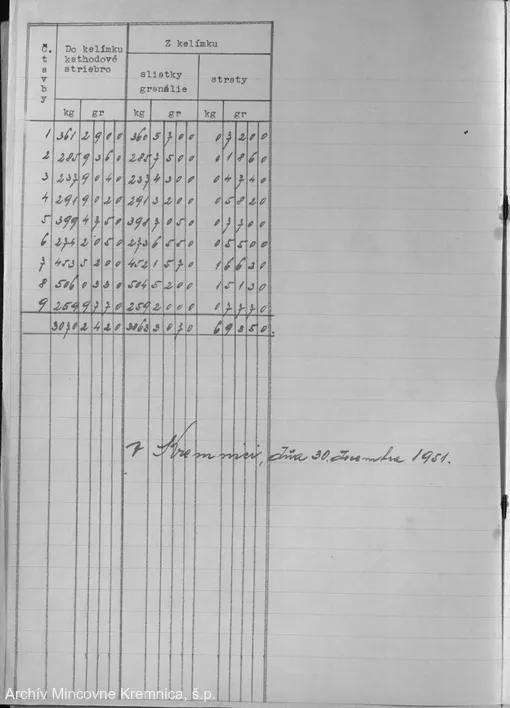 Č.
t
a
v
b
y
Do kelímku
kathodové
striebro
Z kelímku
zliatky
granálie
straty
kg gr kg gr kg gr
1 361 2900 360 5700 0 7200
2 285 9360 285 7500 0 1860
3 237 9040 237 4300 0 4740
4 291 9020 291 3200 0 5820
5 399 4750 398 7050 0 7700
6 274 2050 273 6550 0 5500
7 453 5200 452 1570 1 3630
8 506 0330 504 5200 1 5130
9 259 9770 259 2000 0 7770
3070 2420 3063 3070 6 9350.
V Kremnici, dňa 30. decembra 1951.
Archív Mincovne Kremnica, š.p.